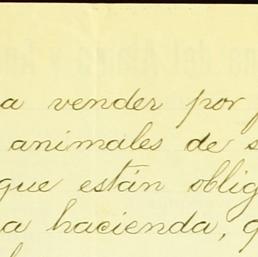 a vender por
animales de s
que están oblig
a hacienda, q